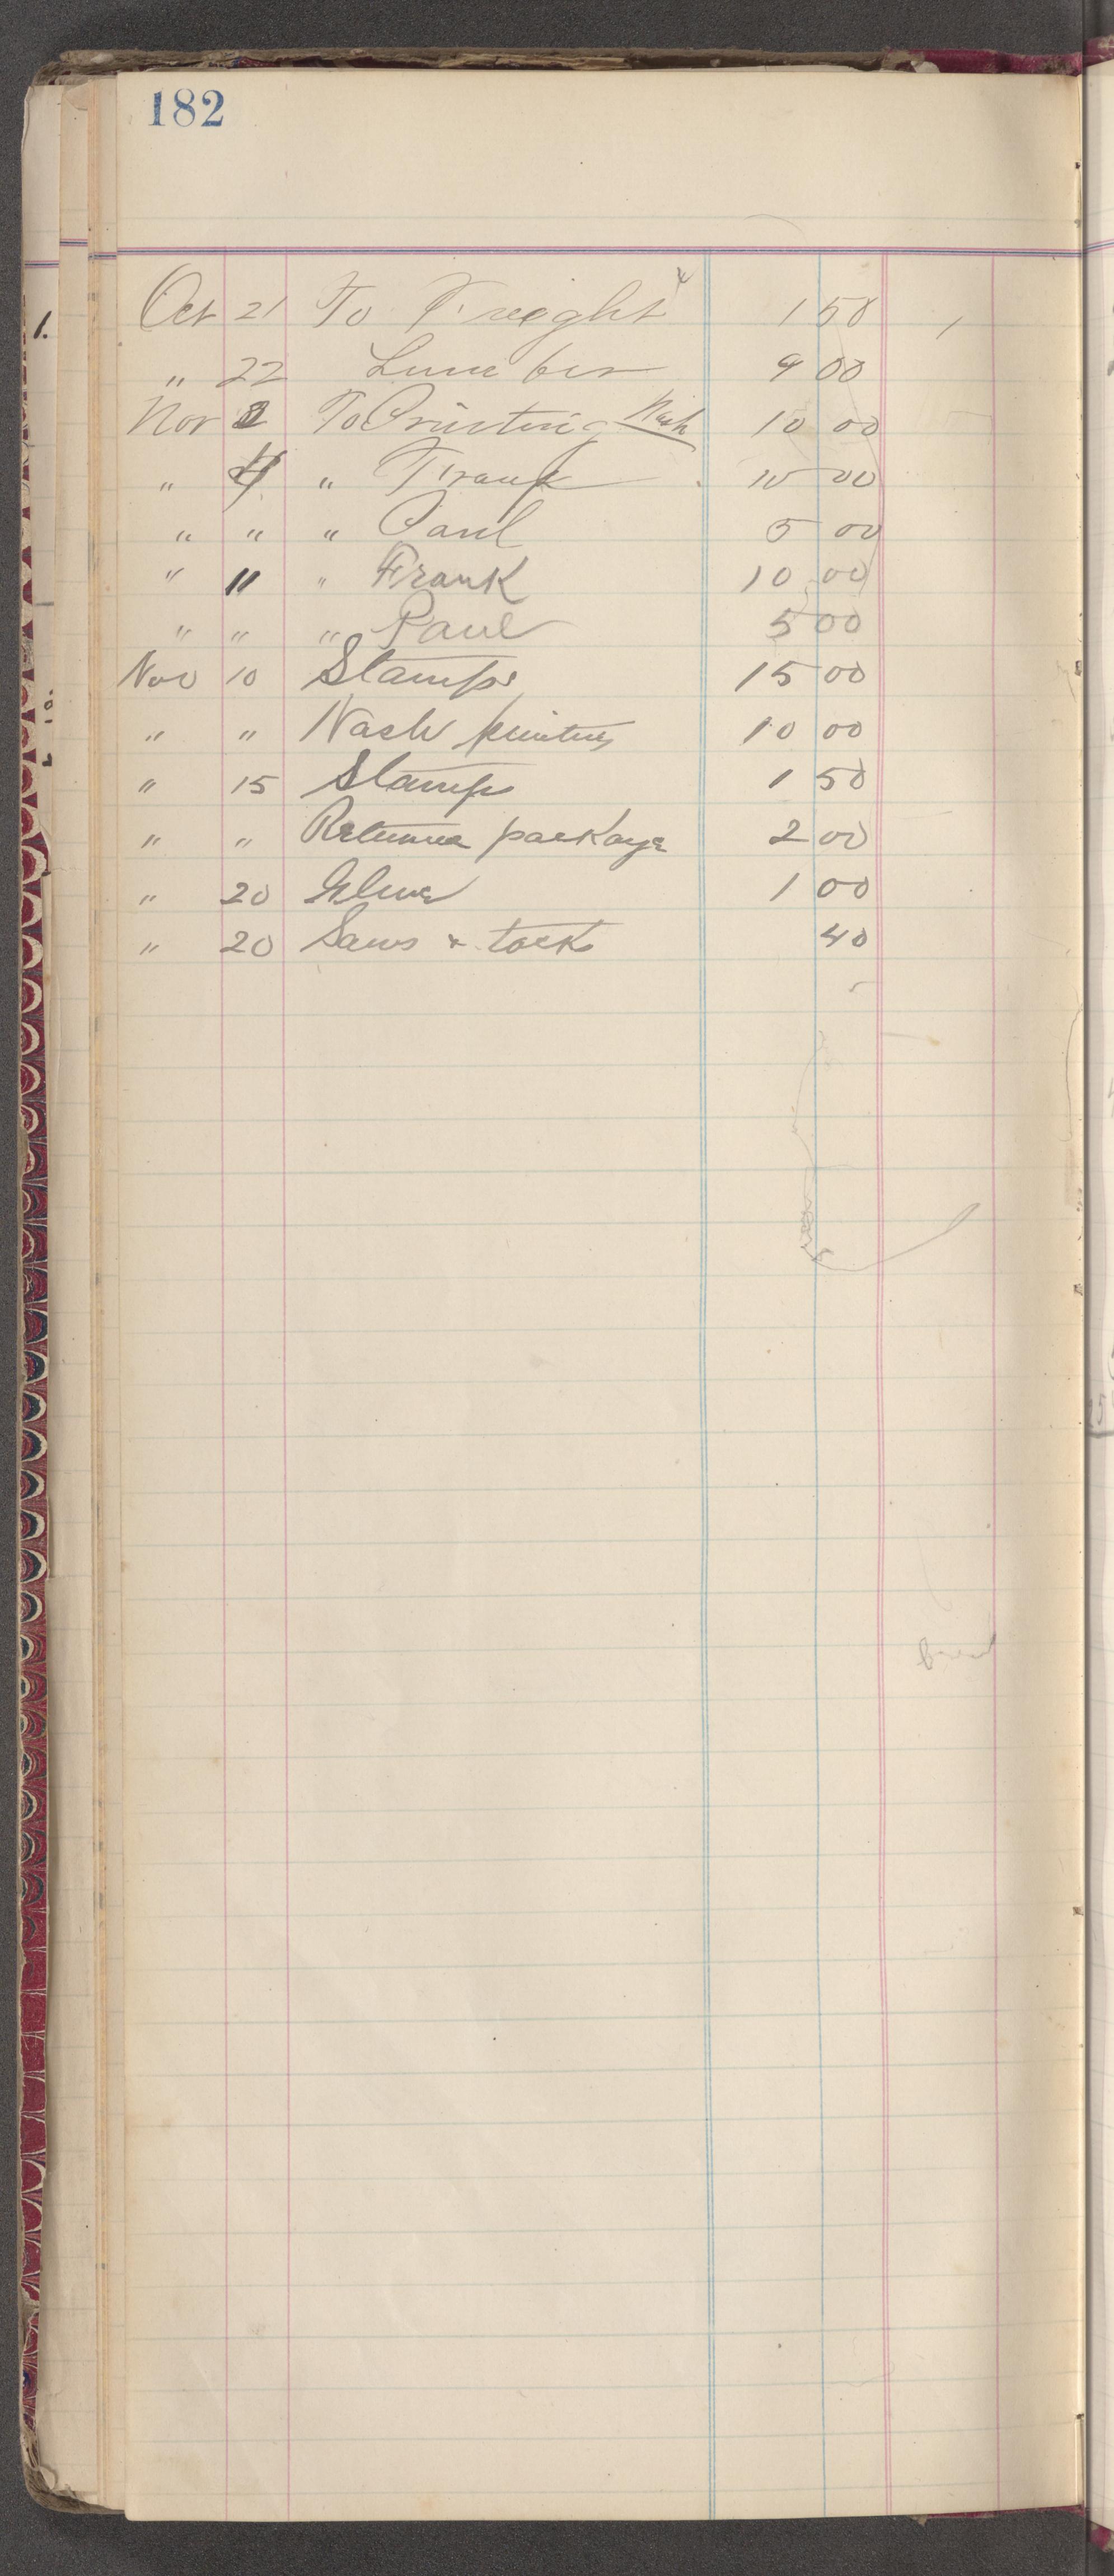 182
Oct 21 To Freight 1 50
" 22 Lumber 9 00
Nov 2 To Printing Nash 10 00
" 4 " Frank 10 00
" " " Paul 5 00
" 11 " Frank 10 00
" " " Paul 5 00
Nov 10 Stamps 15 00
" " Nash printing 10 00
" 15 Stamps 1 50
" " package 2 00
" 20 Glue 1 00
" 20 Saws & tacks 40